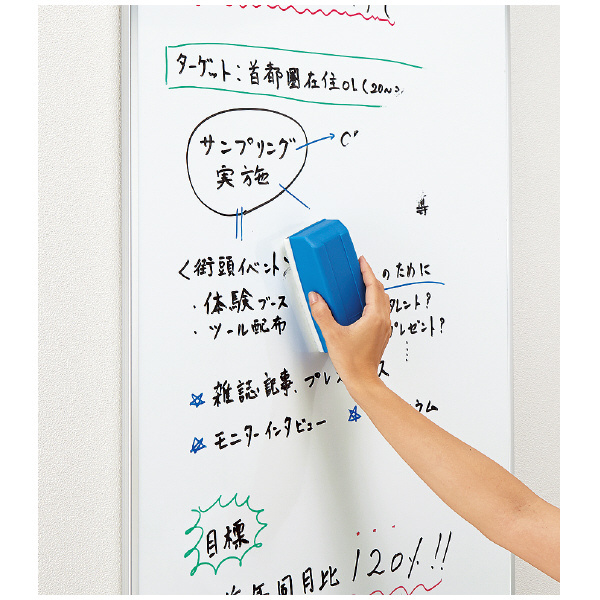 ターゲット:首都圏在住OL(20～
サンプリング
実施
等
<街頭イベント>
のために
・体験ブース
タレント?
・ツール配布
プレゼント?
☆雑誌記事、プレ
ス
☆モニターインタビュー
☆
ウム
目標
前年同月比120%!!